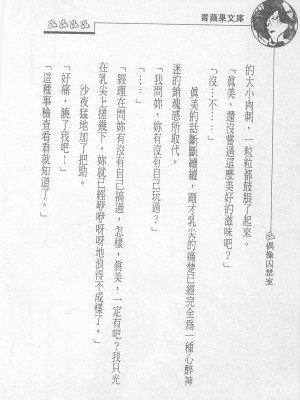 青蘋果文庫
偶像囚禁室
的大小肉刺，一粒粒都鼓脹了起來。
「眞美，還沒嘗過這麼美好的滋味吧？」
「沒…不…」
眞美的話斷斷續續，剛才乳尖的痛楚已經完全爲一種心醉神
迷的銷魂感所取代。
「我問妳，妳有沒有自己玩過？」
「……」
「經理在問妳有沒有自己搞過，怎樣，眞美，一定有吧？我只光
在乳尖上搓幾下，妳就已經咿咿呀呀地浪得不成樣了。」
沙夜猛地加了把勁。
「好痛，饒了我吧！」
「這種事檢查看看就知道了。」